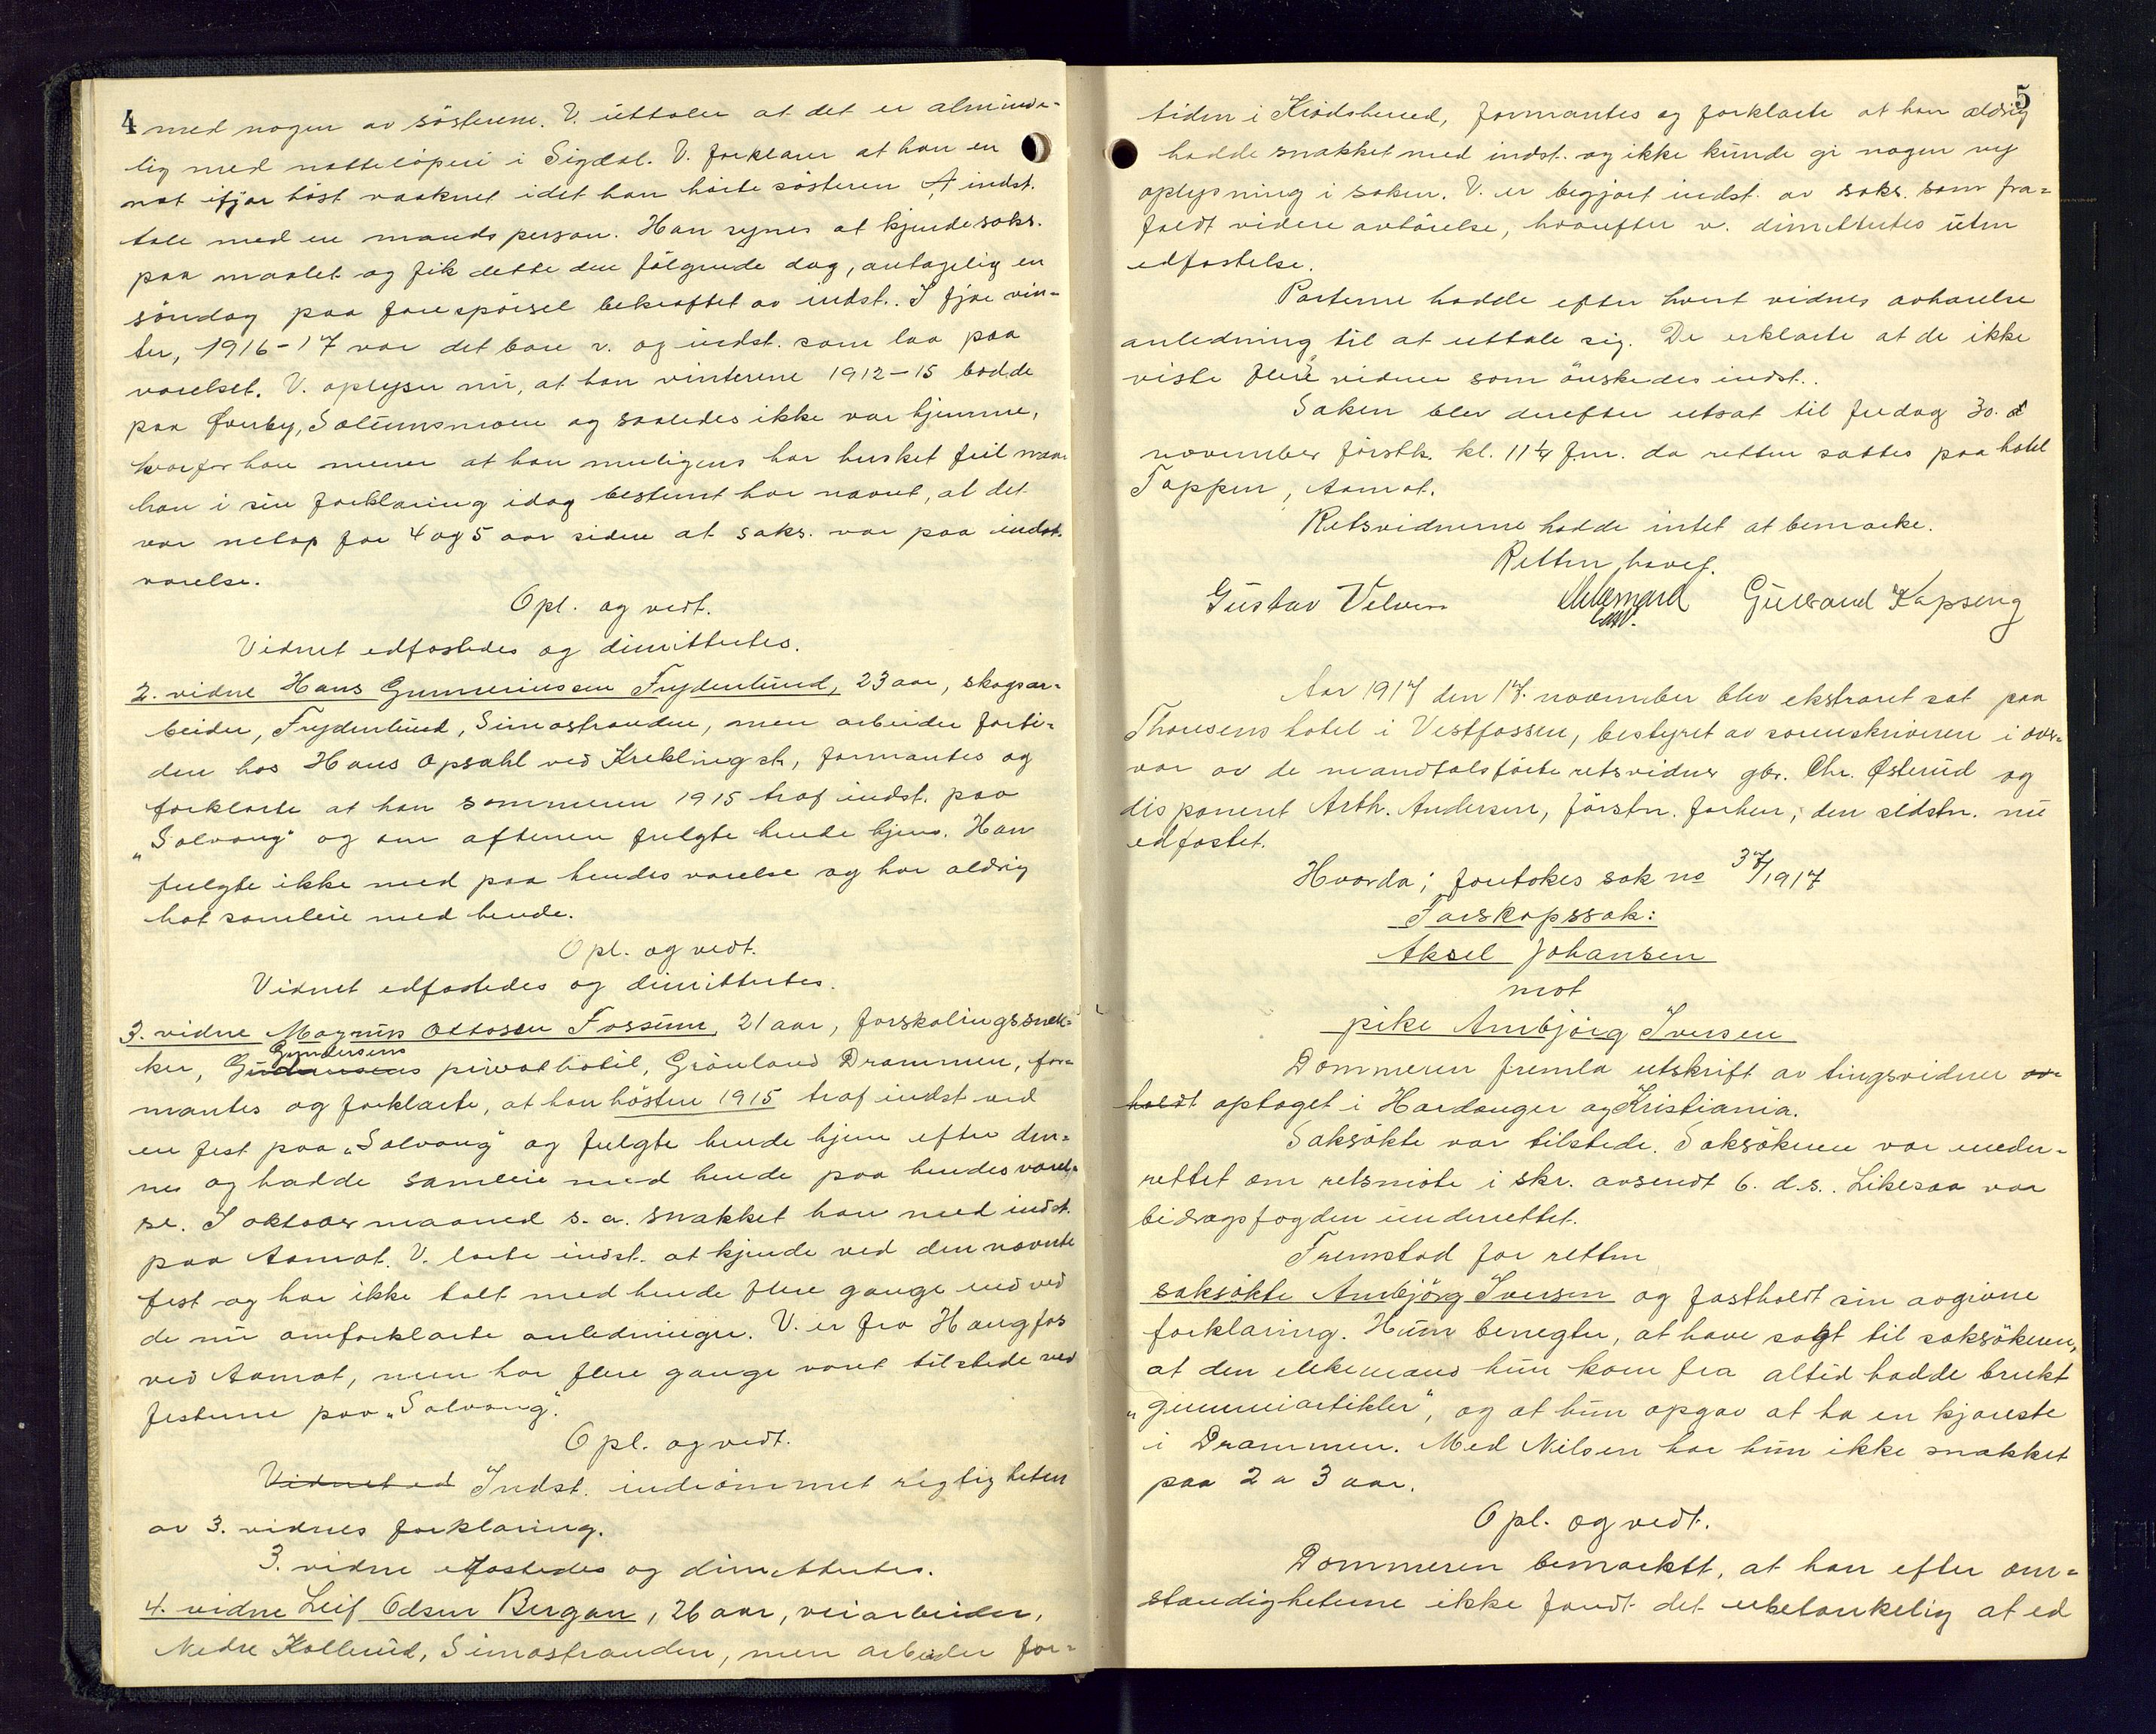 4
med nogen av søsterene. V. uttaler at det er alminde-
lig med natteløperi i Sigdal. V. forklarer at han en
nat ifjor høst vaaknet idet han hørte søsteren A, indst.
tale med en mandsperson. Han synes at kjende saks.
paa maalet og fik dette den følgende dag, antagelig en
søndag paa forespørsel bekræftet av indst.. I fjor vin-
ter, 1916-17 var det bare v. og indst. som laa paa
værelset. V. oplyser nu, at han vinterene 1912-15 bodde
paa Øverby, Solumsmoen og saaledes ikke var hjemme,
hvorfor han mener at han muligens har husket feil naar
han i sin forklaring idag bestemt har nævnt, at det
var netop for 4 og 5 aar siden at saks. var paa indst.
værelse.
Opl. og vedt.
Vidnet edfæstedes og dimittertes.
2. vidne Hans Gunneriussen Frydenlund, 23 aar, skogsar-
beider, Frydenlund, Simostranden, men arbeider forti-
den hos Hans Opsahl ved Krekling st, formantes og
forklarte at han sommeren 1915 traf indst. paa
„Solvang" og om aftenen fulgte hende hjem. Han
fulgte ikke med paa hendes værelse og har aldrig
hat samleie med hende.
Opl. og vedt.
Vidnet edfæstedes og dimittertes.
3. vidne Magnus Ottosen Fossum, 21 aar, forskalingssnek-
Gundersens
ker, privathotel, Grønland Drammen, for-
mantes og forklarte, at han høsten 1915 traf indst ved
en fest paa „Solvang" og fulgte hende hjem efter den-
ne og hadde samleie med hende paa hendes værel-
se. I oktober maaned s. a. snakket han med indst.
paa Aamot. V. lærte indst. at kjende ved den nævnte
fest og har ikke talt med hende flere gange end ved
de nu omforklarte anledninger. V. er fra Haugfos
ved Aamot, men har flere gange været tilstede ved
festene paa „Solvang".
Opl. og vedt.
Vidnet ed Indst. indrømmet rigtigheten
av 3. vidnes forklaring.
3. vidne edfæstedes og dimittertes.
4. vidne Leif Odsen Bergan, 26 aar, veiarbeider,
Nedre Kollerud, Simostranden, men arbeider for-
5
tiden i Krødsherred, formantes og forklarte at han aldrig
hadde snakket med indst. og ikke kunde gi nogen ny
oplysning i saken. V. er begjært indst. av saks. som fra-
faldt videre avhørelse, hvorefter v. dimittertes uten
edfæstelse.
Parterne hadde efter hvert vidnes avhørelse
anledning til at uttale sig. De erklærte at de ikke
viste flere vidner som ønskedes indst..
Saken blev derefter utsat til fredag 30.
november førstk. kl. 11¼ f.m. da retten sættes paa hotel
Toppen, Aamot.
Retsvidnerne hadde intet at bemærke.
Retten hævet.
Gustav Velven Gulbrand Kopseng
Aar 1917 den 17. november blev ekstraret sat paa
Thorsens hotel i Vestfossen, bestyret av sorenskriveren i over-
vær av de mandtalsførte retsvidner gbr. Chr. Østerud og
disponent Arth. Andersen, førstn. forhen, den sidstn. nu
edfæstet.
Hvorda: foretokes sak no 37/1917
Farskapssak:
Aksel Johansen
mot
pike Ambjørg Iversen
Dommeren fremla utskrift av tingsvidner av-
holdt optaget i Hardanger og Kristiania.
Saksøkte var tilstede. Saksøkeren var under-
rettet om retsmøte i skr. avsendt 6. d.s.. Likesaa var
bidragsfogden underrettet.
Fremstod for retten
saksøkte Ambjörg Iversen og fastholdt sin avgivne
forklaring. Hun benegter, at have sagt til saksøkeren,
at den enkemand hun kom fra altid hadde brukt
„gummiartikler", og at hun opgav at ha en kjæreste
i Drammen. Med Nilsen har hun ikke snakket
paa 2 a 3 aar.
Opl. og vedt.
Dommeren bemærket, at han efter om-
stændigheterne ikke fandt det ubetænkelig at ed